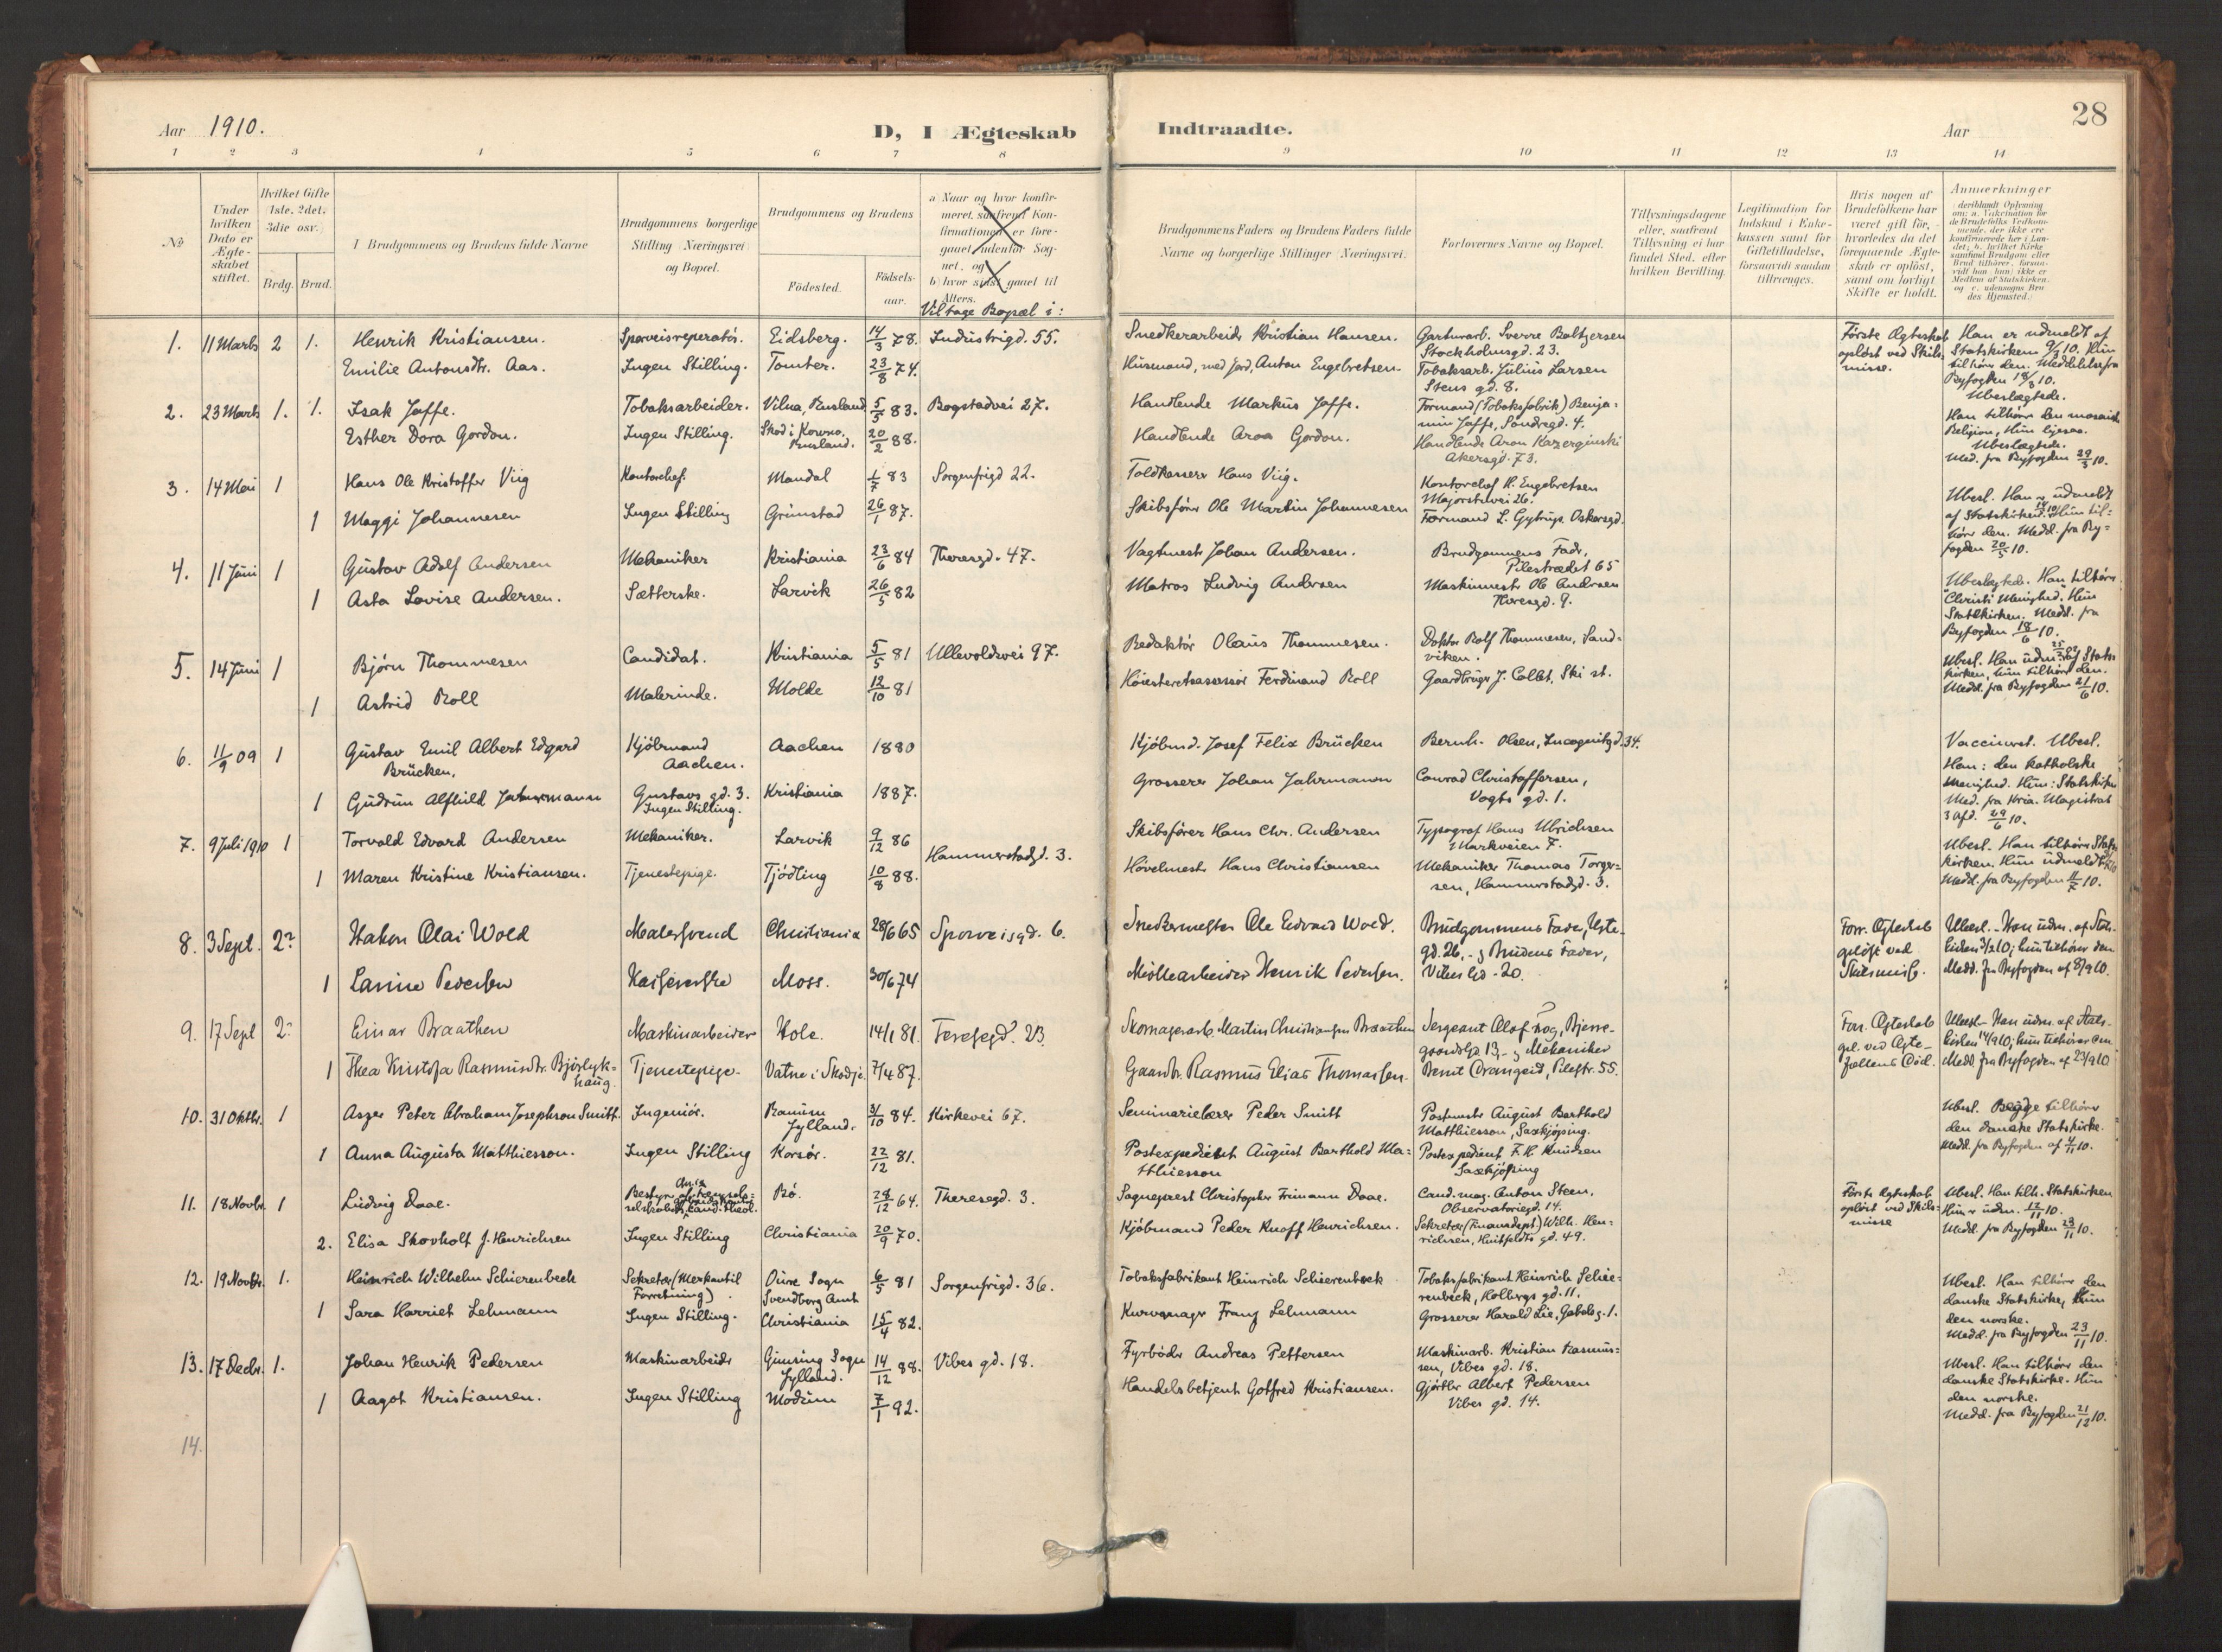 28
Aar 1910. D, I Ægteskab Indtraadte. Aar
1 2 3 4 5 6 7 8 9 10 11 12 13 14
No
Under hvilken Dato er Ægteskabet stiftet.
Hvilket Gifte (1ste, 2det, 3die osv.)
Brdg. Brud.
1 Brudgommens og Brudens fulde Navne
Brudgommens borgerlige Stilling (Næringsvei) og Bopæl.
Brudgommens og Brudens
Fødested. Fødselsaar.
a Naar og hvor konfirmeret, saafremt Konfirmationen er foregaaet udenfor Sognet, og
b) hvor sidst gaaet til Alters.
Vil tage Bopæl i:
Brudgommens Faders og Brudens Faders fulde Navne og borgerlige Stillinger (Næringsvei).
Forlovernes Navne og Bopæl.
Tillysningsdagene eller, saafremt Tillysning ei har fundet Sted, efter hvilken Bevilling.
Legitimation for Indskud i Enkekassen samt for Giftetilladelse, forsaavidt saadan tiltrænges.
Hvis nogen af Brudefolkene har været gift før, hvorledes da det foregaaende Ægteskab er opløst, samt om lovligt Skifte er holdt.
Anmærkninger (deriblandt Oplysning om: a. Vakcination for de Brudefolks Vedkommende, der ikke ere konfirmerede her i Landet; b. hvilket Kirkesamfund Brudgom eller Brud tilhører, forsaavidt han (hun) ikke er Medlem af Statskirken, og c. udensogns Brudes Hjemsted.)
1. 11 Marts 2 1. Henrik Kristiansen. Sporveisreperatör. Eidsberg. 14/3 78. Industrigd. 55. Snedkerarbeider Kristian Hansen. Gartnerarb. Sverre Baltzersen Stockholmsgd. 23. Første Ægteskab opløst ved Skilsmisse. Han er udmeldt af Statskirken 9/3 10. Hun tilhører den. Meddelelse fra Byfogden 18/3 10. Ubeslægtede.
Emilie Antonsdtr. Aas. Ingen Stilling. Tomter. 23/8 74. Husmand, med Jord, Anton Engebretsen. Tobaksarb. Julius Larsen Stens gd. 8.
2. 23 Marts 1. 1. Isak Jaffe. Tobaksarbeider. Vilna, Rusland. 5/5 83. Bogstadvei 27. Handlende Markus Jaffe. Formand (Tobaksfabrik) Benjamin Jaffe, Söndregd. 4. Han tilhører den mosaiske Religion, Hun ligesaa. Ubeslægtede. Med. fra Byfogden 29/3 10.
Esther Dora Gordon. Ingen Stilling. Skod i Kowno, Rusland. 20/2 88. Handlende Aron Gordon. Handlende Aron Kazerginski Akersgd. 73.
3. 14 Mai 1 Hans Ole Kristoffer Viig Kontorchef. Mandal 1/7 83 Sorgenfrigd 22. Toldkasserer Hans Viig. Kontorchef H. Engebretsen Majorstuvei 26. Ubesl. Han er udmeldt af Statskirken. Hun tilhører den. Medd. fra Byfogden 20/5 10.
1 Maggi Johannesen Ingen Stilling Grimstad 26/1 87. Skibsfører Ole Martin Johannesen Formand L. Gytrup. Oskarsgd.
4. 11 Juni 1 Gustav Adolf Andersen Mekaniker Kristiania 23/6 84 Theresgd. 47. Vagtmester Johan Andersen. Brudgommens Fader, Pilestrædet 65 Ubeslægtede. Han tilhører Christi Menighed. Hun Statskirken. Medd. fra Byfogden 18/6 10.
1 Asta Lovise Andersen. Sætterske. Larvik 26/5 82 Matros Ludvig Andersen Maskinmester Ole Andersen Theresgd. 9.
5. 14 Juni 1 Bjørn Thommesen Candidat. Kristiania 5/5 81 Ullevoldsvei 97. Redaktör Olaus Thommesen. Doktor Rolf Thommesen, Sandviken. Ubesl. Han udm. af Statskirken, hun tilhører den. Medd. fra Byfogden 21/6 10.
1 Astrid Roll Malerinde. Molde 12/10 81 Høiesteretsassessor Ferdinand Roll Gaardbruger J. Collet, Ski st.
6. 11/9 09 1 Gustav Emil Albert Edgard Brücken. Kjöbmand Aachen. Aachen 1880 Kjöbmd. Josef Felix Brücken Bernh. Olsen, Incognitogd. 34. Vaccineret. Ubesl. Han: den katholske Menighed. Hun: Statskirken Med. fra Kria. Magistrat 3 Afd. 29/6 10.
1 Gudrun Alfhild Jahrmann Gustavs gd. 3. Ingen Stilling. Kristiania 1887. Grosserer Johan Jahrmann Conrad Christoffersen, Vogts gd. 1.
7. 9 Juli 1910 1 Torvald Edvard Andersen Mekaniker. Larvik 9/12 86 Hammerstadgd. 3. Skibsfører Hans Chr. Andersen Typograf Hans Ulrichsen Markveien 7. Ubesl. Han tilhører Statskirken. Hun udmeldt. Medd. fra Byfogden 11/7 10.
1 Maren Kristine Kristiansen. Tjenestepige. Tjödling 10/8 88. Høvelmester Hans Christiansen Mekaniker Thomas Torgersen, Hammerstadgd. 3.
8. 3 Sept. 2? Hakon Olai Wold Malersvend Christiania 28/6 65 Sporveisgd. 6. Snedkermester Ole Edvard Wold. Brudgommens Fader, gd. 26, - og Brudens Fader, Vibes Gd - 20. Forr. Ægteskab opløst ved Skilsmisse. Ubesl. - Han udm. af Statskirken 3/9 10; hun tilhører den Medd. fra Byfogden af 8/9 10.
1 Larine Pedersen Kasserske Moss. 30/6 74 Møllearbeider Henrik Pedersen.
9. 17 Sept 2? Einar Braathen Maskinarbeider Hole. 14/1 81. Teresegd. 23. Skomagerarb. Martin Christiansen Braathen Sergeant Olaf Bjerregaardsgd. 13, - og Mekaniker Forr. Ægteskab opl. ved Ægtefællens Død. Ubesl. - Han udm. af Statskirken 14/9 10; hun tilhører den Medd. fra Byfogden af 23/9 10
1 Thea Kristofa Rasmusdtr. Bjørlykhaug Tjenestepige. Vatne i Skodje. 7/4 87. Gaardbr. Rasmus Elias Thomassen. Bernt Orangeid, Pilestr. 55.
10. 31 Oktbr. 1 Asger Peter Abraham Josephson Smith. Ingeniör. Ranum Jylland. 31/10 84. Kirkevei 67. Seminarielærer Peder Smith Postmester August Barthold Matthiesson, Saxkjøping. Ubesl. Begge tilhører den danske Statskirke. Medd. fra Byfogden af 4/11 10.
1 Anna Augusta Matthiesson. Ingen Stilling Korsör. 22/12 81. Postexpedient August Barthold Matthiesson Postexpedient F. H. Knudsen Saxkjøping
11. 18 Novbr 1 Ludvig Daae. cand. theol. Bö. 28/12 64. Theresegd. 3. Sogneprest Christopher Frimann Daae. Cand. mag. Anton Steen, Observatoriegd. 14. Første Ægteskab opløst ved Skilsmisse Ubesl. Han tilh. Statskirken Hun er udm. 12/11 10. Medd. fra Byfogden 23/11 10.
2. Elisa Skovholt f. Henrichsen Ingen Stilling Christiania 20/9 70. Kjöbmand Peder Knoff Henrichsen. Sekretær (Finansdept.) Wilh. Henrichsen, Huitfeldts gd. 49.
12. 19 Novbr. 1. Heinrich Wilhelm Schierenbeck Sekretær (Merkantil Forretning). Oure Sogn Svendborg Amt 6/5 81 Sorgenfrigd. 36. Tobaksfabrikant Heinrich Schierenbeck Tobaksfabrikant Heinrich Schierenbeck, Holbergs gd. 11. Ubesl. Han tilhører den danske Statskirke, hun den norske. Medd. fra Byfogden 23/11 10.
1 Sara Harriet Lehmann Ingen Stilling. Christiania 15/4 82. Kurvemager Franz Lehmann Grosserer Harald Lie, Gabelsg. 1.
13. 17 Decbr. 1. Johan Henrik Pedersen Maskinarbeider Gimsing Sogn Jylland. 14/12 88. Vibes gd. 18. Fyrböder Andreas Pettersen Maskinarb. Kristian Rasmussen, Vibes gd. 18. Ubesl. Han tilhører den danske Statskirke. Hun den norske. Medd. fra Byfogden 21/12 10.
1 Aagot Kristiansen. Ingen Stilling Modum 7/1 92. Handelsbetjent Gotfred Kristiansen. Gjørtler Albert Pedersen Vibes gd. 14.
14.